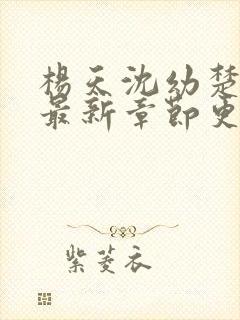 楊天沈幼楚
最新章節更
紫菱衣